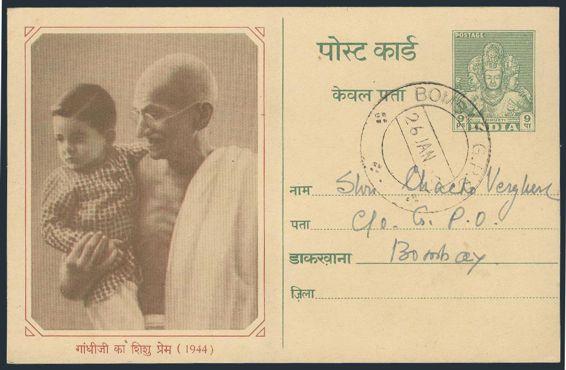 पोस्ट कार्ड
केवल पता
POSTAGE
9 ps
9 पा
INDIA
BOMBAY G.P.O.
26 JAN
नाम Shri Chacko Verghese
पता C/o. G. P. O.
डाकखाना Bombay.
ज़िला
गांधीजी का शिशु प्रेम (1944)